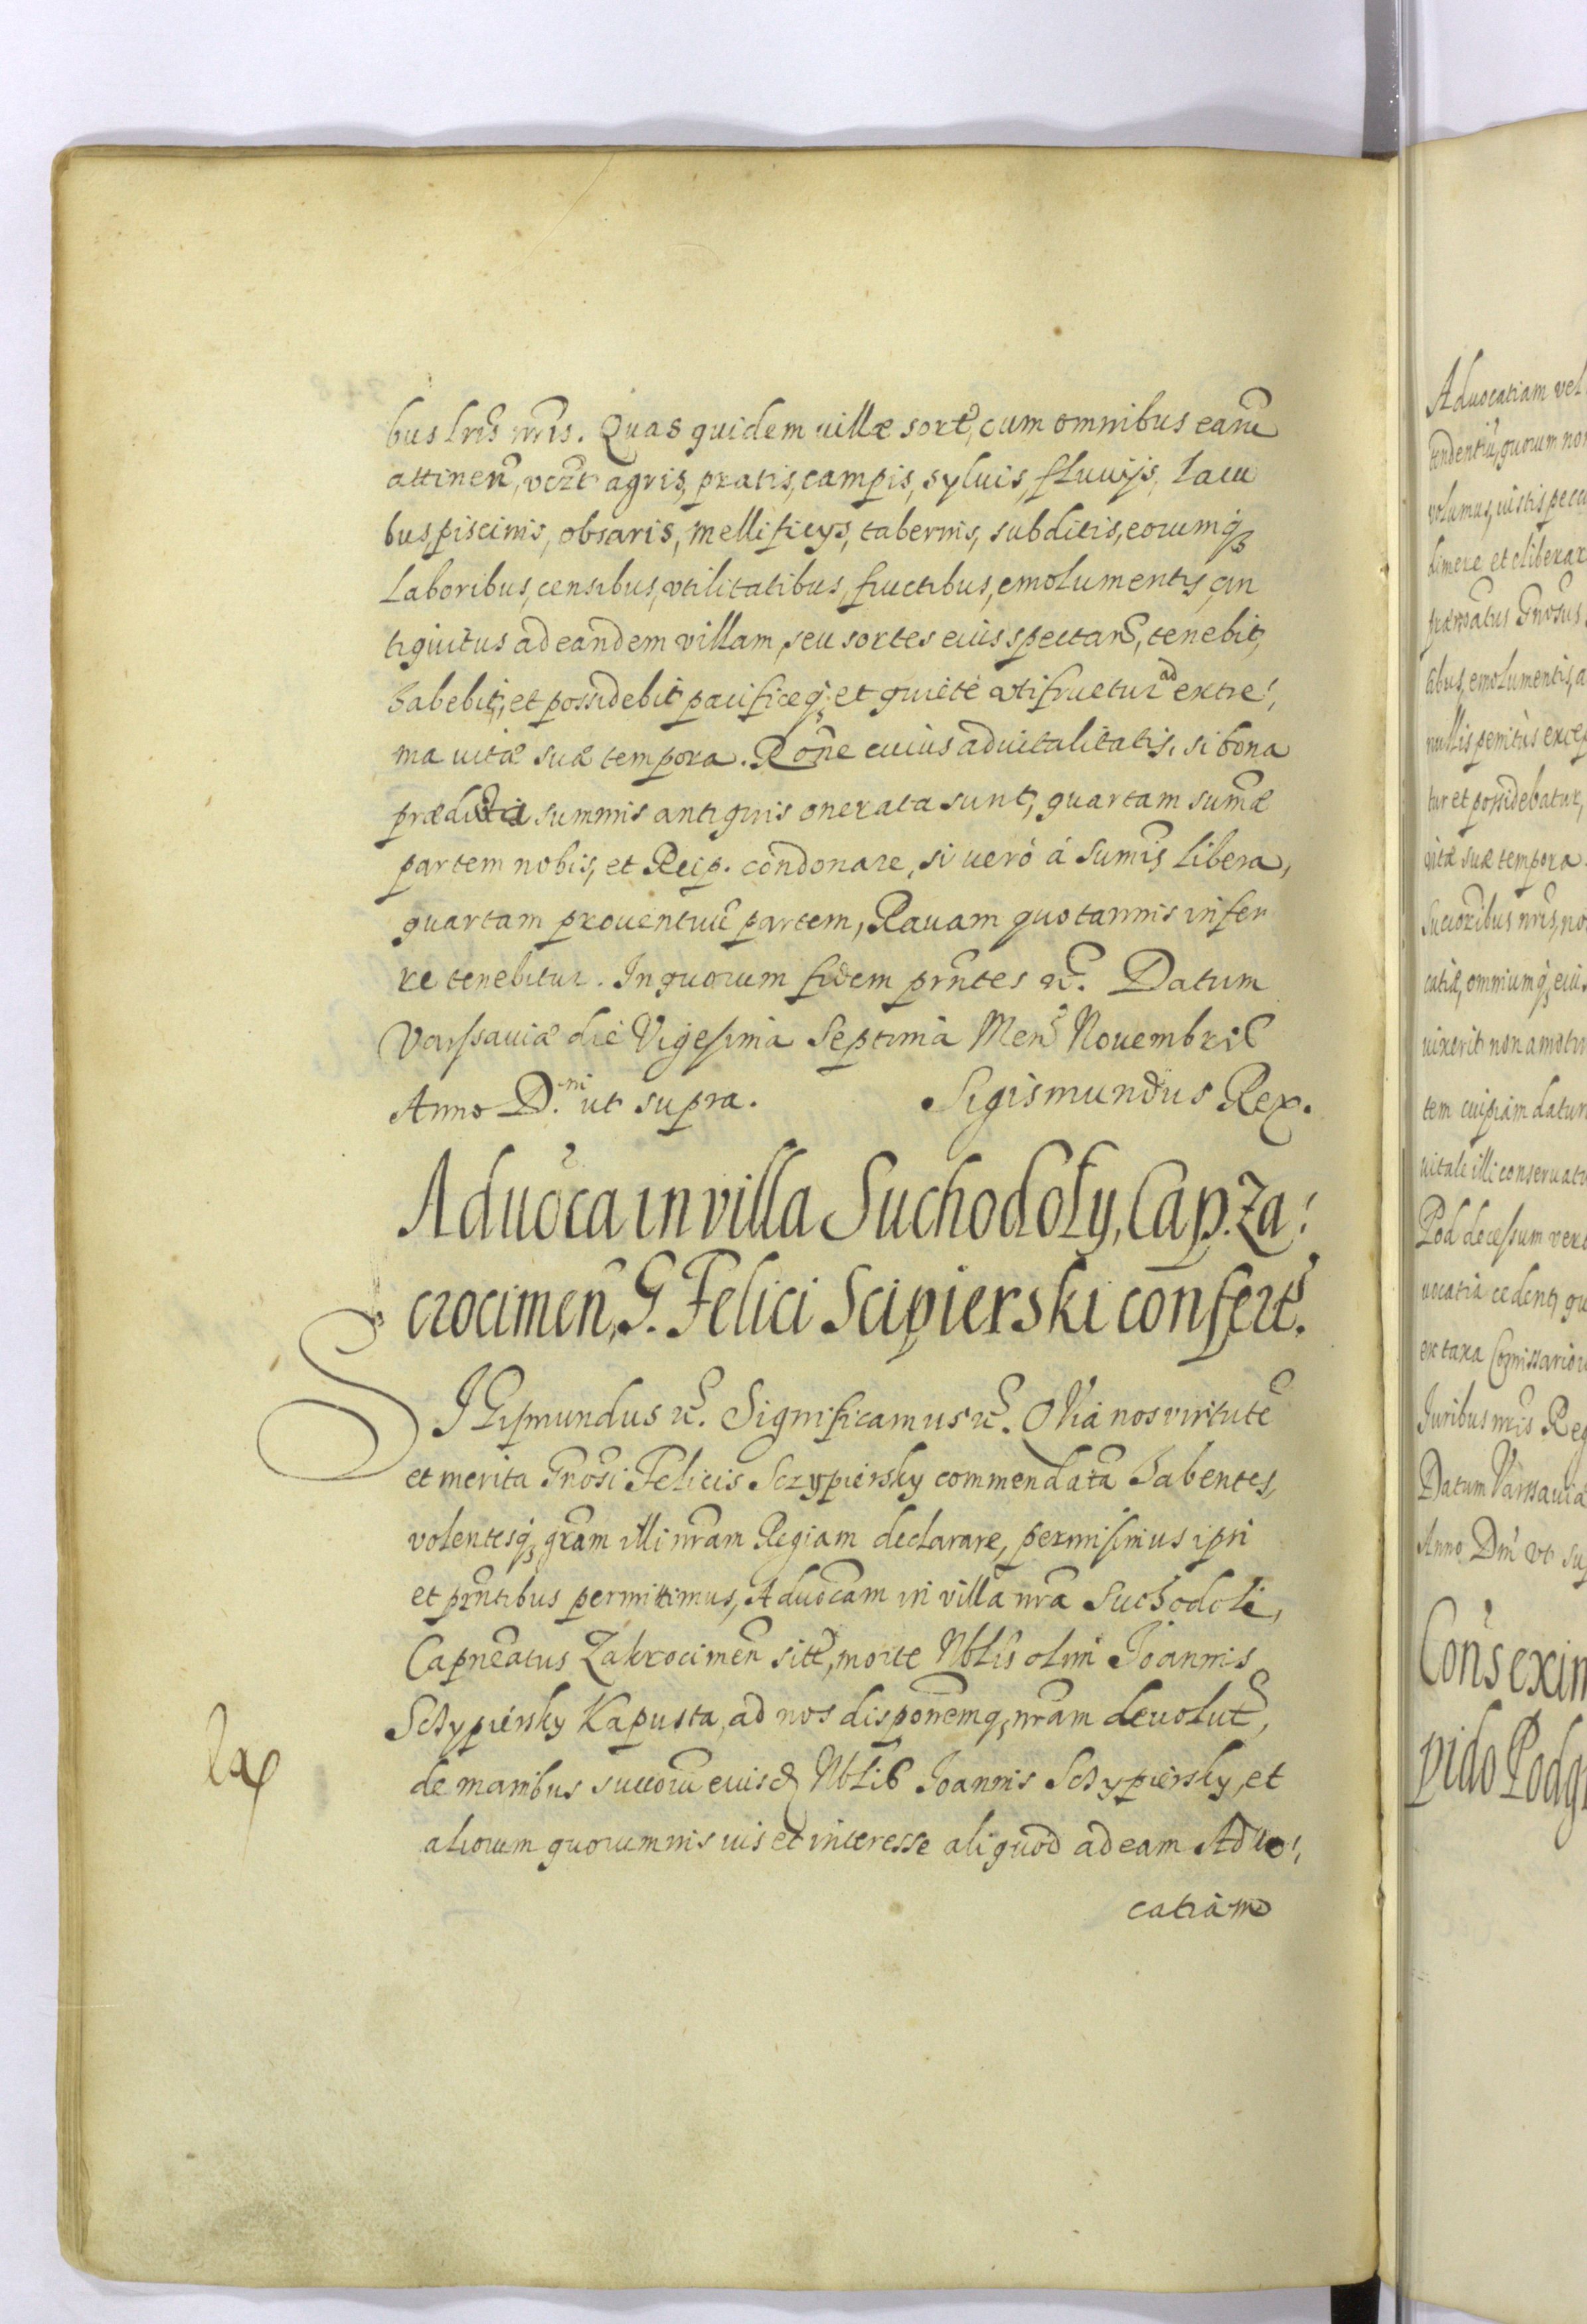 bus lris nris. Quas quidem villæ sort, cum omnibus earu
attinen, vczt agris, pratis, campis, syluis, fluuijs, lacu
bus, piscinis, obsaris, mellificijs, tabernis, subditis, eorumq;
laboribus, censibus, vtilitatibus, fructibus, emolumentis, an
tiquitus ad eandem villam, seu sortes eius spectan, tenebit,
habebit, et possidebit pacificeq; et quietè vtifruetur ad extre
ma vitæ suæ tempora. Rone cuius aduitalitatis, si bona
prædicta summis antiquis onerata sunt, quartam sumæ
partem nobis, et Reip. condonare, si verò á sumis libera,
quartam prouentuu partem, Rauam quotannis infer
re tenebitur. In quorum fidem prntes &. Datum
Varssauiæ die Vigesima Septima Mens Nouembris
Anno D.ni ut supra. Sigismundus Rex.
Aduoca in villa Suchodoły, Cap. Za
crocimen, G. Felici Scipierski confert.
SIGismundus &. Significamus &. Qħia nos virtute
et merita Gnosi Felicis Sczypiersky commendata habentes,
volentesq; gram illi nram Regiam declarare, permisimus ipsi
et prntibus permittimus, Aduocam in villa nra Suchodoli,
Capneatus Zakrocimen sitt, morte Nblis olim Joannis
Sczypiersky Kapusta, ad nos disponemq; nram deuolut,
de manibus succoru eiusd Nblis Joannis Sczypiersky, et
aliorum quorumuis ius et interesse aliquod ad eam Aduo
catiam
Aduocatiam vel
tendentiu, quorum non
volumus, uistis pecu
dimere et eliberar
Gnosus
tibus, emolumentis, a
nullis penitùs excep
tur et possidebatur,
vitæ suæ tempora
Succoribus nris, no
catiæ, omniumq; eius
uixerit non amotu
tem cuipiam datur
uitale illi conseruatu
Pod decessum vero
uocatia cedent, qu
ex taxa Comissarior
Juribus nris Reg
Datum Varssauiæ
Anno Dni vt su
Cons exim
pido Podg